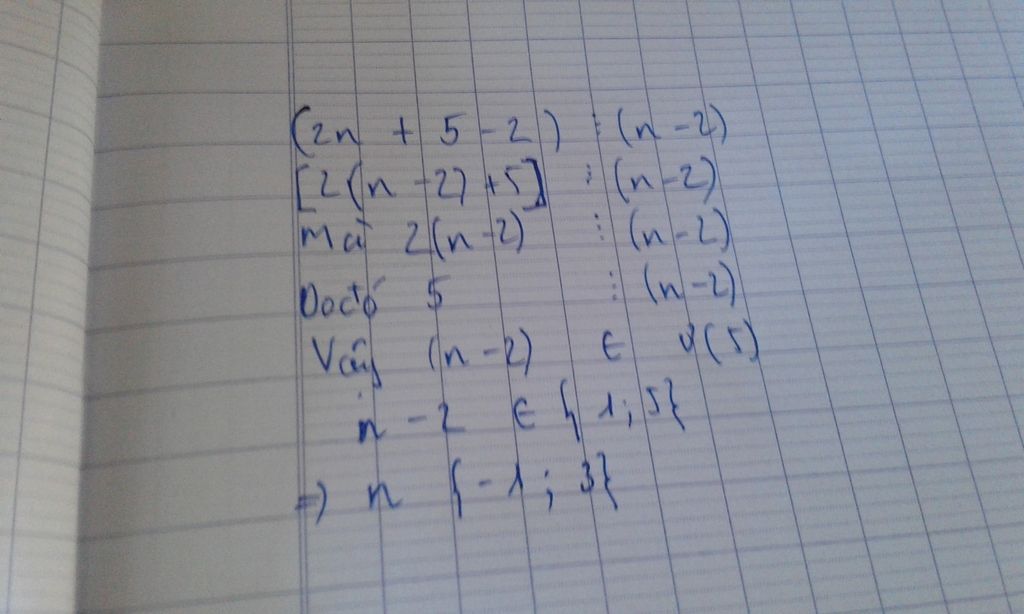 (2n + 5 - 2) ⋮ (n - 2)
[2(n - 2) + 5] ⋮ (n - 2)
Mà 2(n - 2) ⋮ (n - 2)
Do đó 5 ⋮ (n - 2)
Vậy (n - 2) ∈ Ư(5)
n - 2 ∈ {1; 5}
=> n {-1; 3}